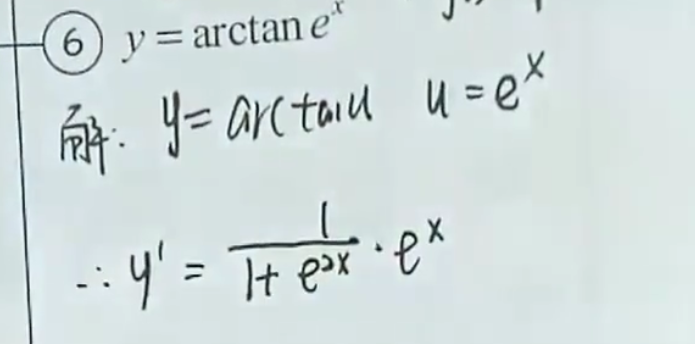 ⑥ y = arctan eˣ
解: y = arctanu u = eˣ
∴ y' = 1/(1+e²ˣ) · eˣ